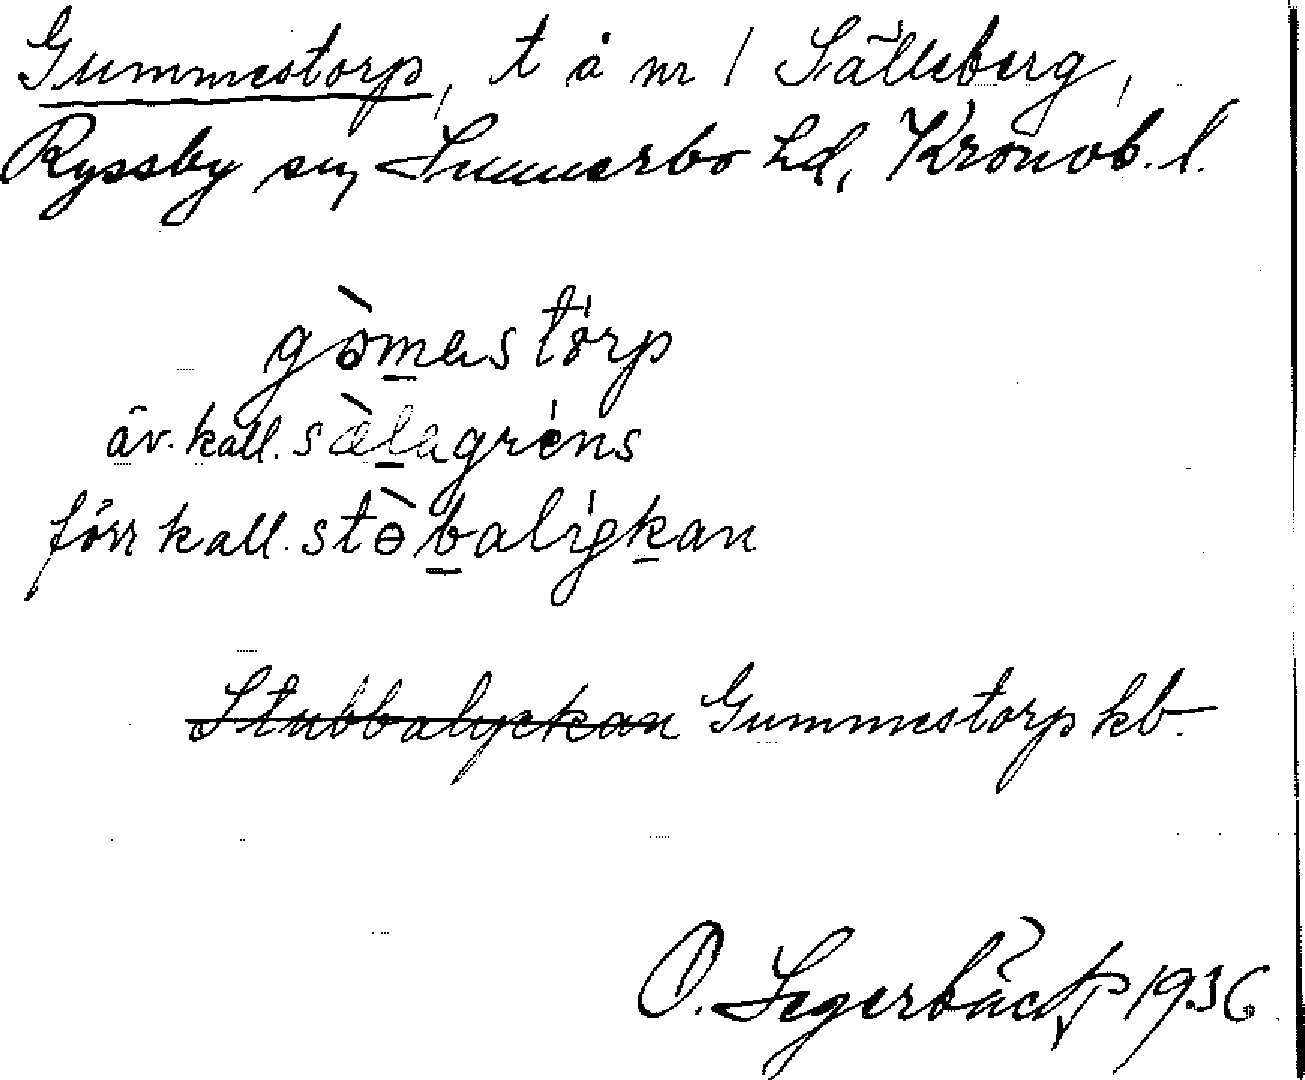 Gummestorp, t å nr 1 Sälleberg,
Ryssby sn, Sunnerbo hd, Kronob. l.
gòmestórp
äv. kall. sæ̀lagréns
förr kall. stɵ̀balýkan
Stubbalyckan Gummestorp kb.
O. Segerbäck 1936